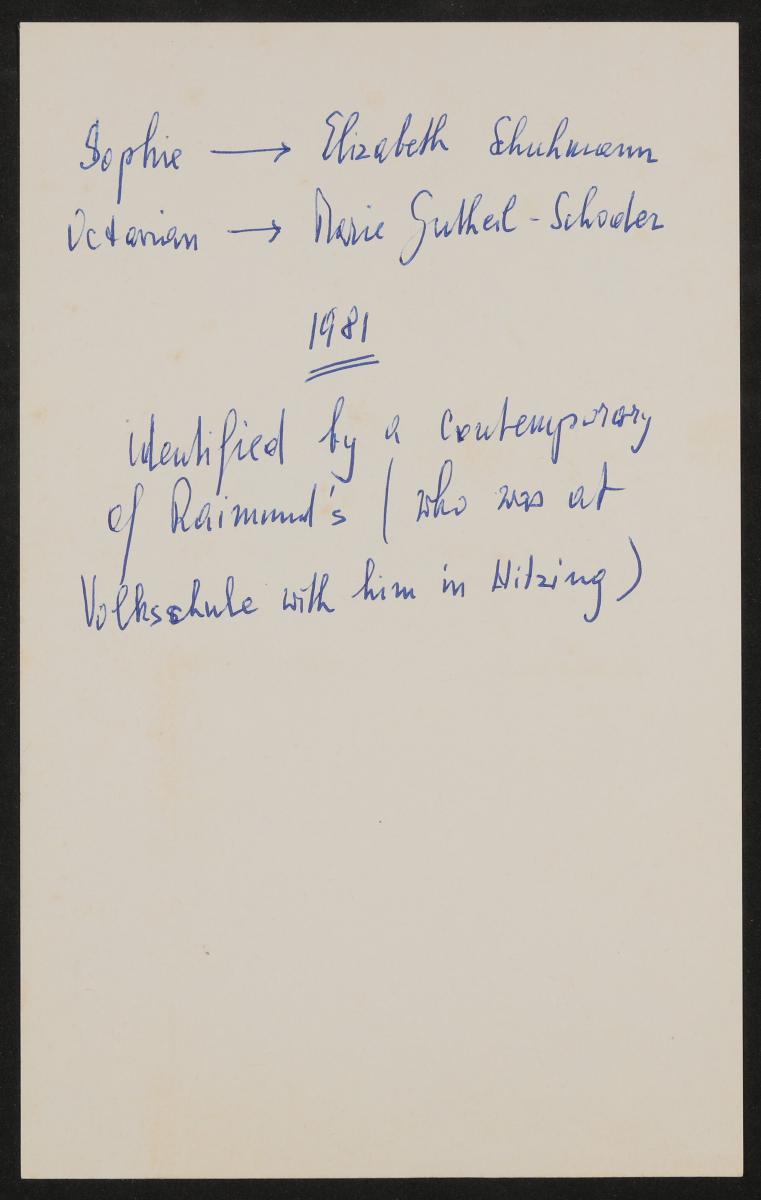 Sophie → Elizabeth Schuhmann
Octavian → Marie Gutheil-Schoder
1981
identified by a contemporary
of Raimund's (who was at
Volksschule with him in Hitzing)